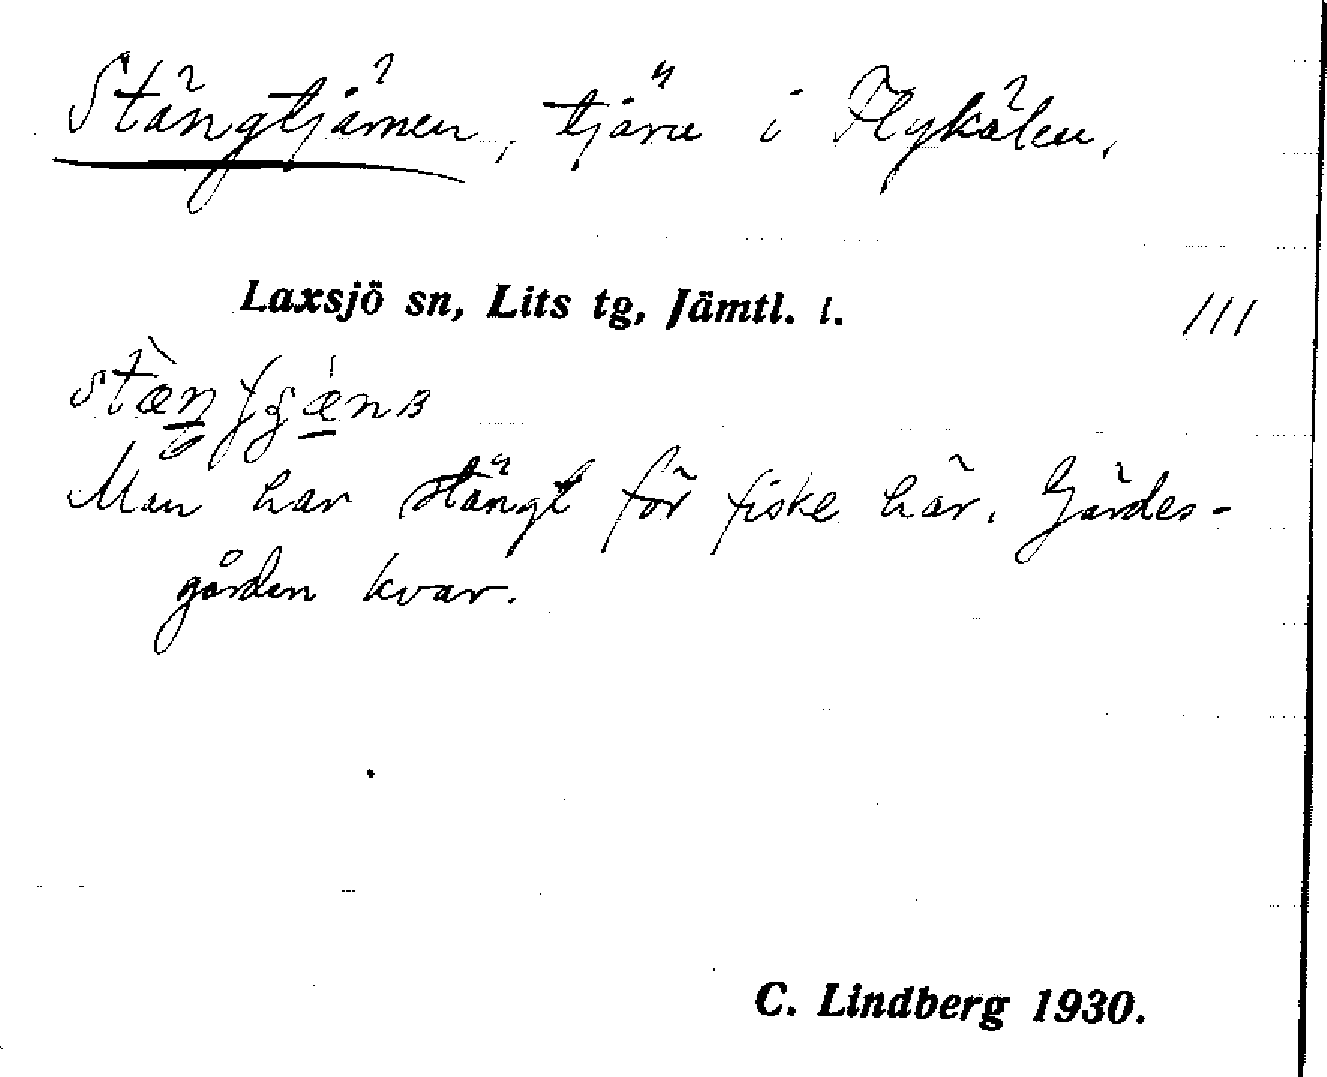 Stängtjärnen, tjärn i Flykälen.
Laxsjö sn, Lits tg, Jämtl. l. 111
Man har stängt för fiske här. Gärdes-
gården kvar.
C. Lindberg 1930.